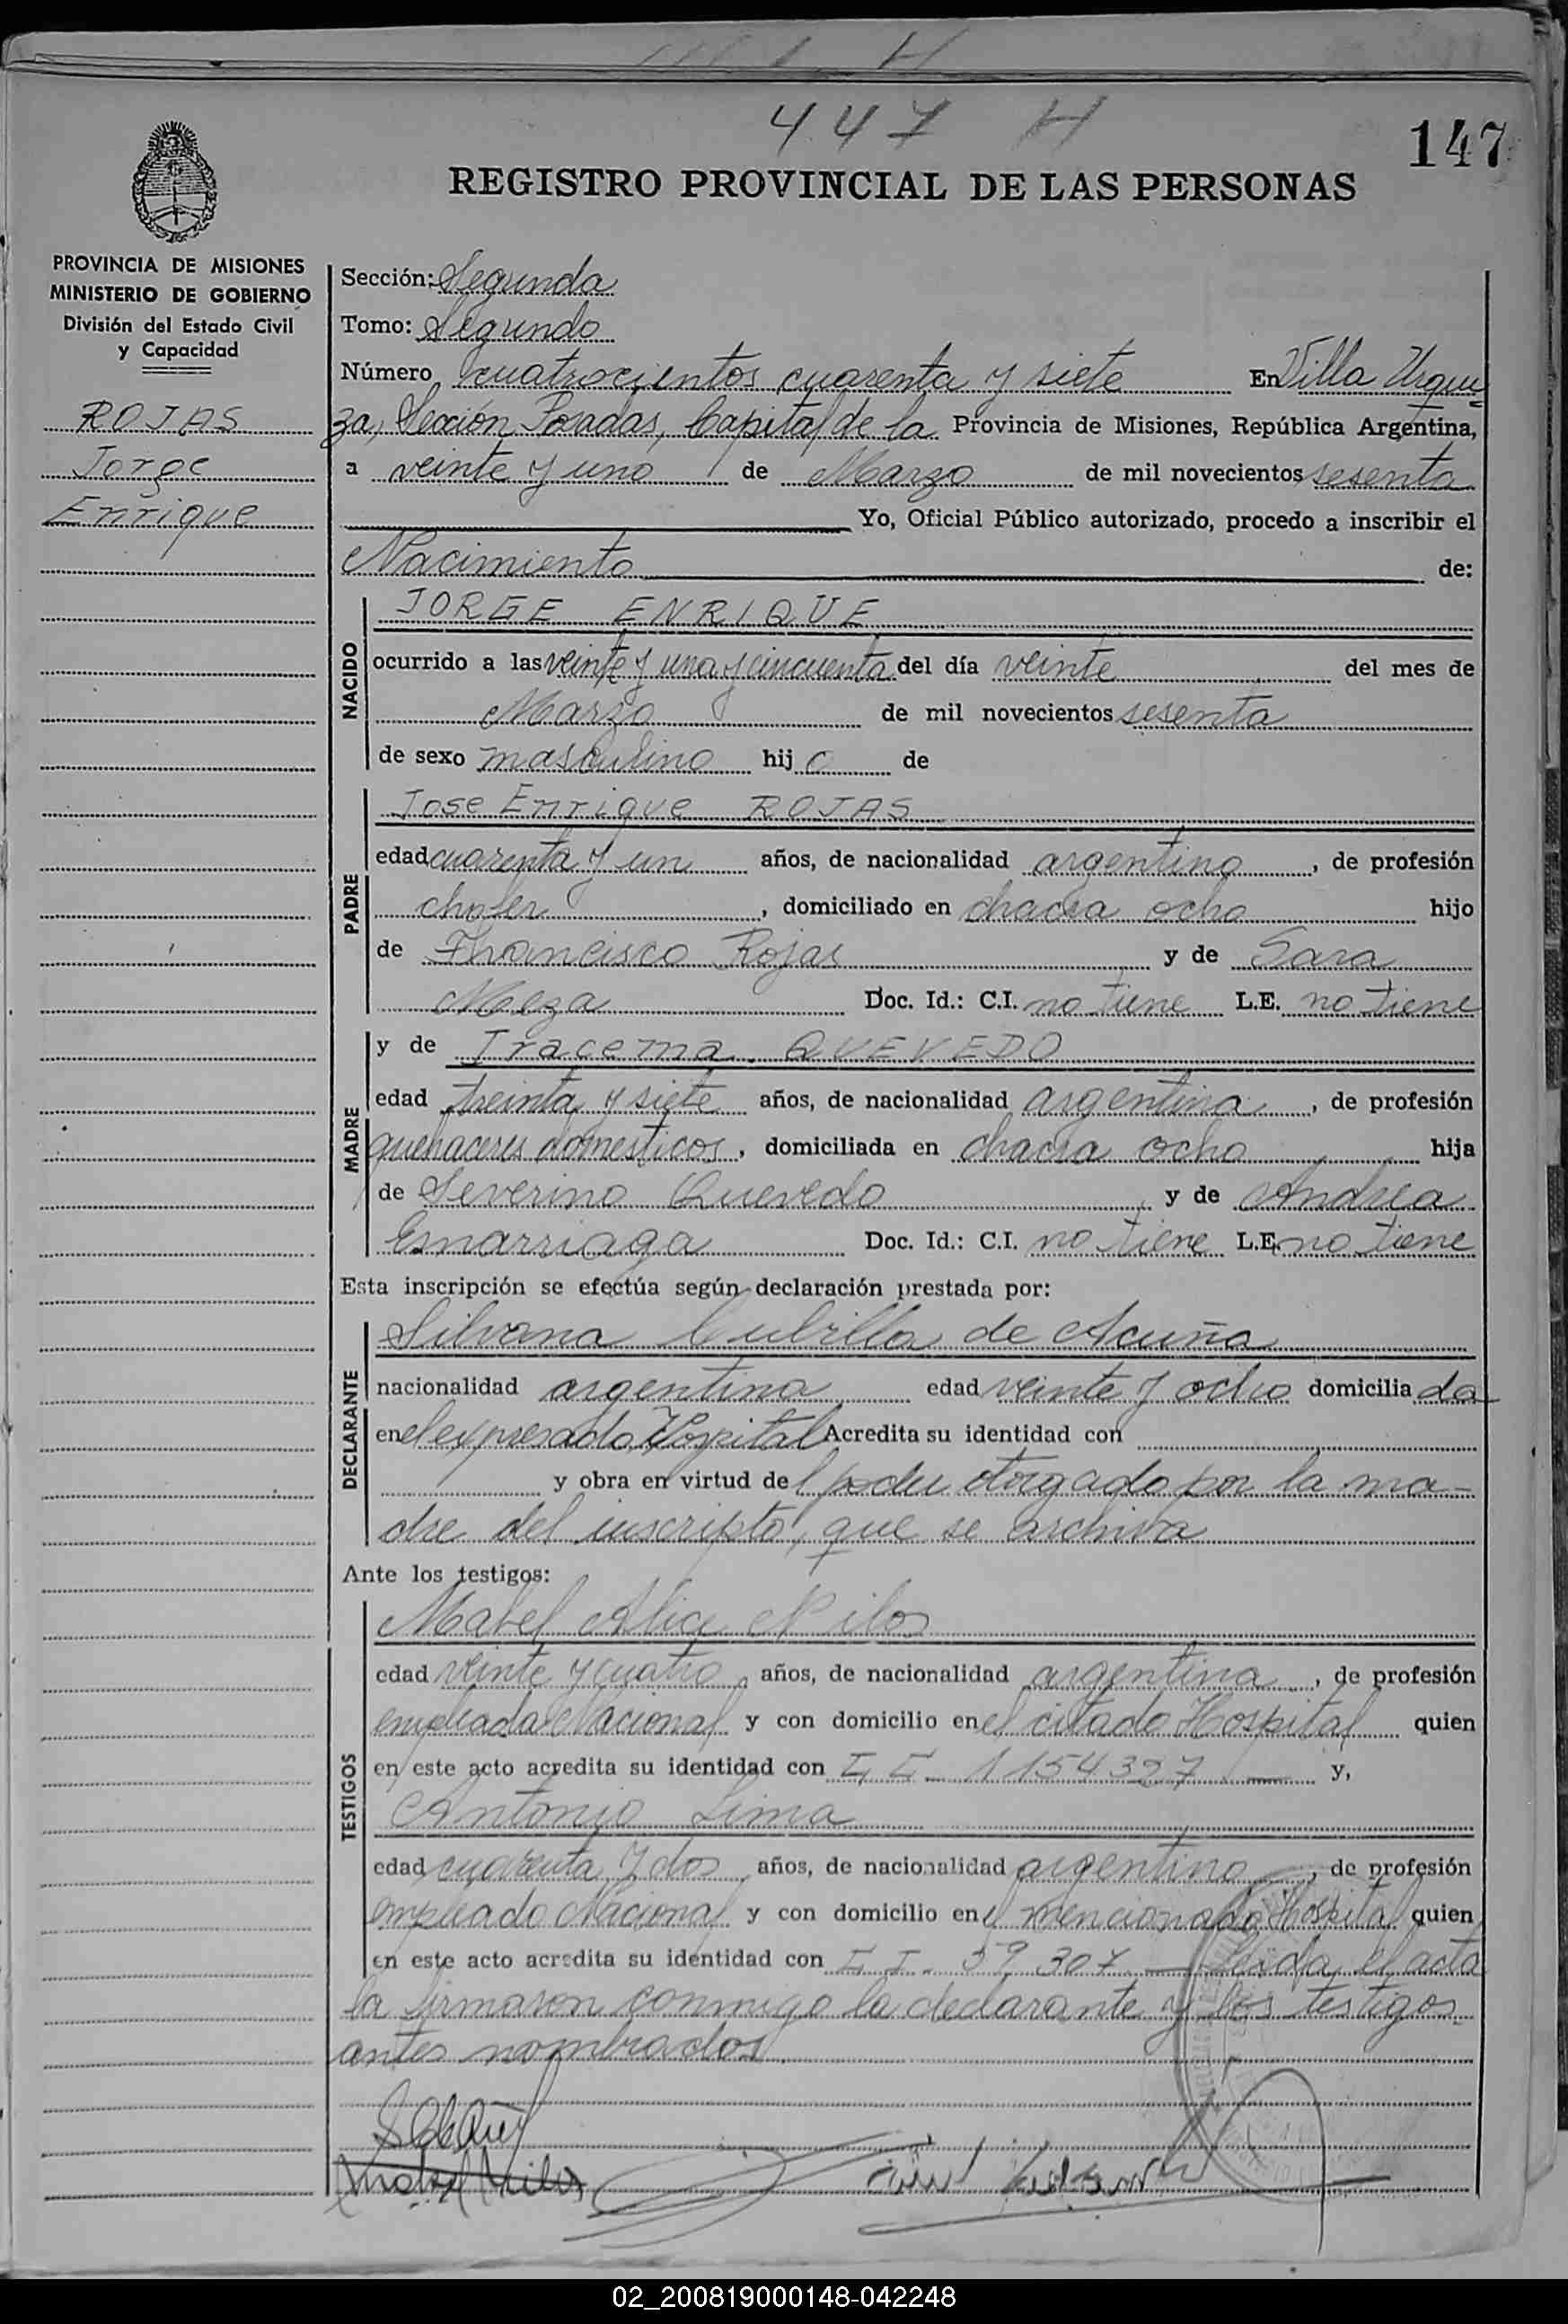 447 H
147
REGISTRO PROVINCIAL DE LAS PERSONAS
PROVINCIA DE MISIONES
MINISTERIO DE GOBIERNO
División del Estado Civil
y Capacidad
ROJAS
Jorge
Enrique
Sección: Segunda
Tomo: Segundo
Número cuatrocientos cuarenta y siete En Villa Urqui
za, Sección Posadas, Capital de la Provincia de Misiones, República Argentina,
a veinte y uno de Marzo de mil novecientos sesenta
Yo, Oficial Público autorizado, procedo a inscribir el
Nacimiento de:
NACIDO
JORGE ENRIQUE
ocurrido a las veinte y una y cincuenta del día veinte del mes de
Marzo de mil novecientos sesenta
de sexo masculino hijo de
PADRE
Jose Enrique ROJAS
edad cuarenta y un años, de nacionalidad argentino, de profesión
chofer, domiciliado en chacra ocho hijo
de Francisco Rojas y de Sara
Meza Doc. Id.: C.I. no tiene L.E. no tiene
MADRE
y de Iracema QUEVEDO
edad treinta y siete años, de nacionalidad argentina, de profesión
quehaceres domesticos, domiciliada en chacra ocho hija
de Severino Quevedo y de Andrea
Doc. Id.: C.I. no tiene L.E. no tiene
Esta inscripción se efectúa según declaración prestada por:
DECLARANTE
Silvana Cubilla de Acuña
nacionalidad argentina edad veinte y ocho domiciliada
en el expresado Hospital Acredita su identidad con
y obra en virtud del poder otorgado por la ma-
dre del inscripto, que se archiva
Ante los testigos:
TESTIGOS
Mabel Alice Nilos
edad veinte y cuatro años, de nacionalidad argentina, de profesión
empleada Nacional y con domicilio en el citado Hospital quien
en este acto acredita su identidad con 1154327 y,
Antonio Lima
edad cuarenta y dos años, de nacionalidad argentino, de profesión
empleado Nacional y con domicilio en el mencionado Hospital quien
en este acto acredita su identidad con 59307 Leida el acta
la firmaron conmigo la declarante y los testigos
antes nombrados
02_200819000148-042248